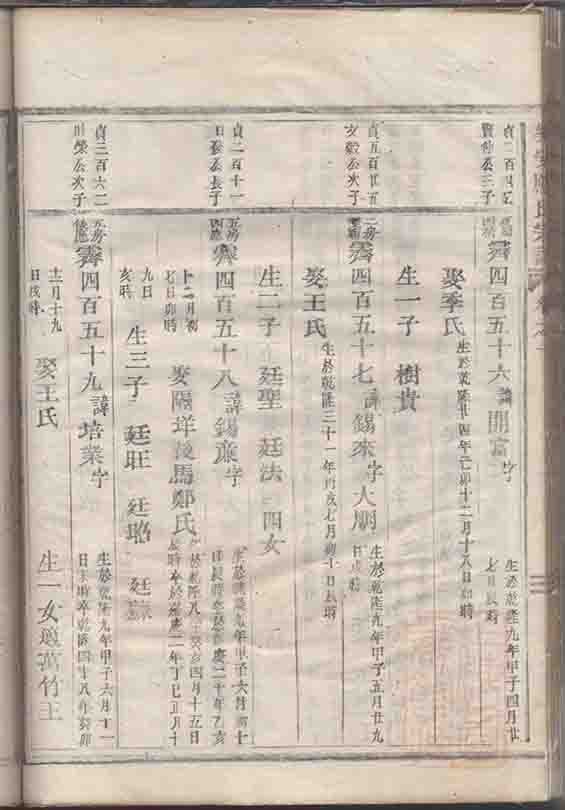 貞二百四
四百五十六 諱 開富 字
生於乾隆九年甲子四月廿
七日辰時
娶季氏
生於乾隆廿四年己卯十二月十八日卯時
生一子 樹貴
貞五百廿五
文毅公次子
二房
四百五十七 諱 錫來 字 大朋
生於乾隆九年甲子五月廿九
日戌時
娶王氏
生於乾隆三十一年丙戌七月初十日辰時
生二子 廷聖 廷法 四女
貞二百十一
日公長子
五房
四百五十八 諱 錫 字
年甲子六月初十
慶二十年乙亥
十二月初
七日卯時
娶隔垟後馬鄭氏
生於乾隆八年癸亥四月十五日
時卒於嘉慶二年丁巳正月十
九日
亥時
生三子 廷旺 廷焰 廷
貞三百六二
榮公次子
四百五十九 諱 培業 字
生於乾隆九年甲子六月十一
日時卒乾隆四十八年癸卯
十二月十九
日戌時
娶王氏
生一女適萬竹王